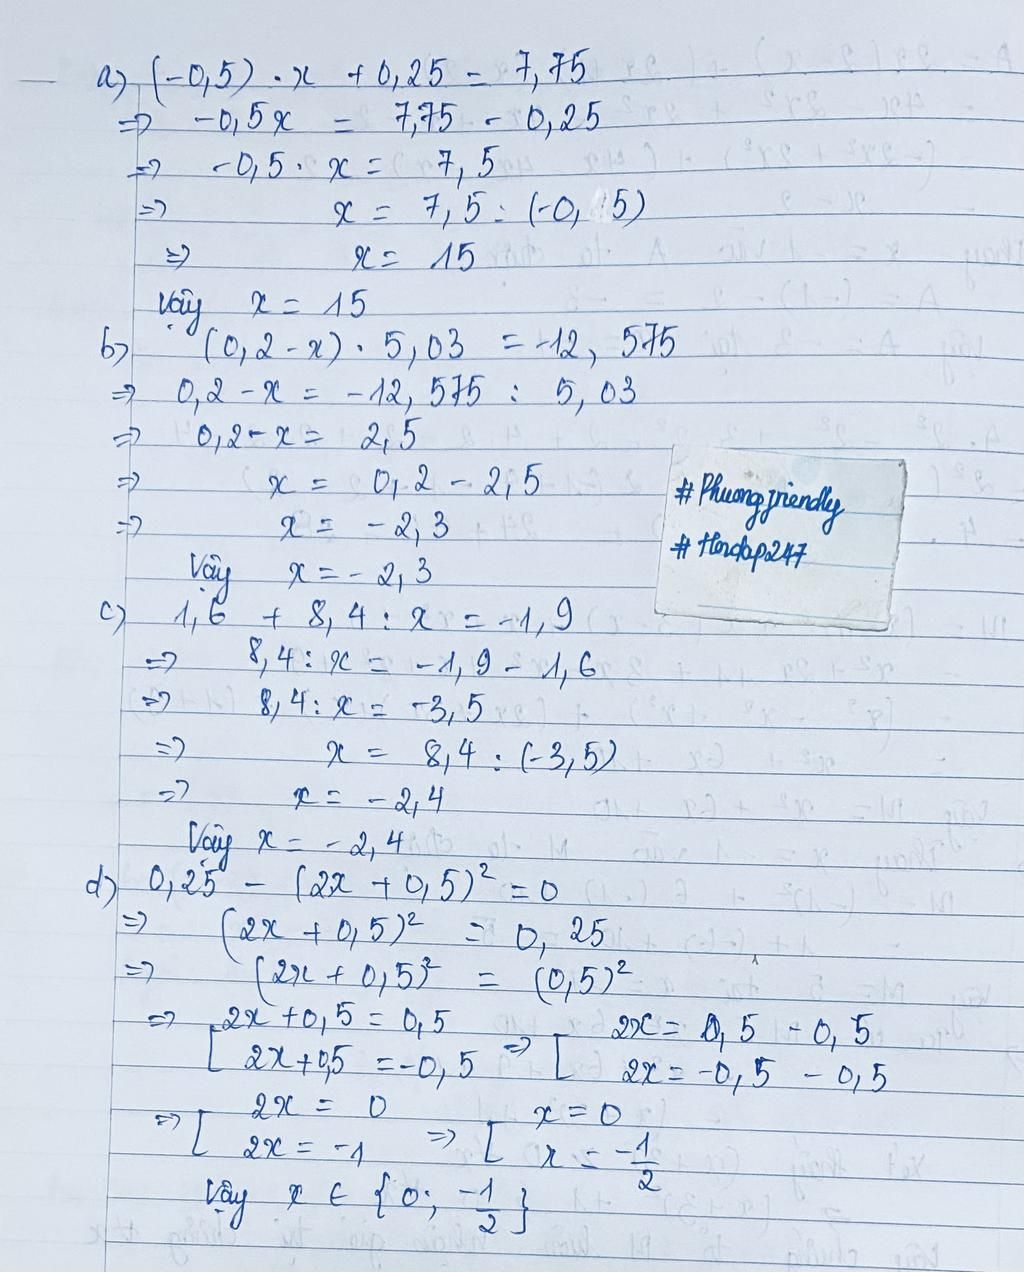 a) (-0,5) . x + 0,25 = 7,75
=> -0,5x = 7,75 - 0,25
=> -0,5 . x = 7,5
=> x = 7,5 : (-0, 5)
=> x = 15
Vậy x = 15
b) (0,2 - x) . 5,03 = -12,575
=> 0,2 - x = -12,575 : 5,03
=> 0,2 - x = 2,5
=> x = 0,2 - 2,5
=> x = -2,3
Vậy x = -2,3
#Phuongfriendly
#Hoidap247
c) 1,6 + 8,4 : x = -1,9
=> 8,4 : x = -1,9 - 1,6
=> 8,4 : x = -3,5
=> x = 8,4 : (-3,5)
=> x = -2,4
Vậy x = -2,4
d) 0,25 - (2x + 0,5)² = 0
=> (2x + 0,5)² = 0,25
=> (2x + 0,5)² = (0,5)²
=> [ 2x + 0,5 = 0,5 => [ 2x = 0,5 - 0,5
2x + 0,5 = -0,5 2x = -0,5 - 0,5
=> [ 2x = 0 => [ x = 0
2x = -1 x = -1/2
Vậy x ∈ {0; -1/2}